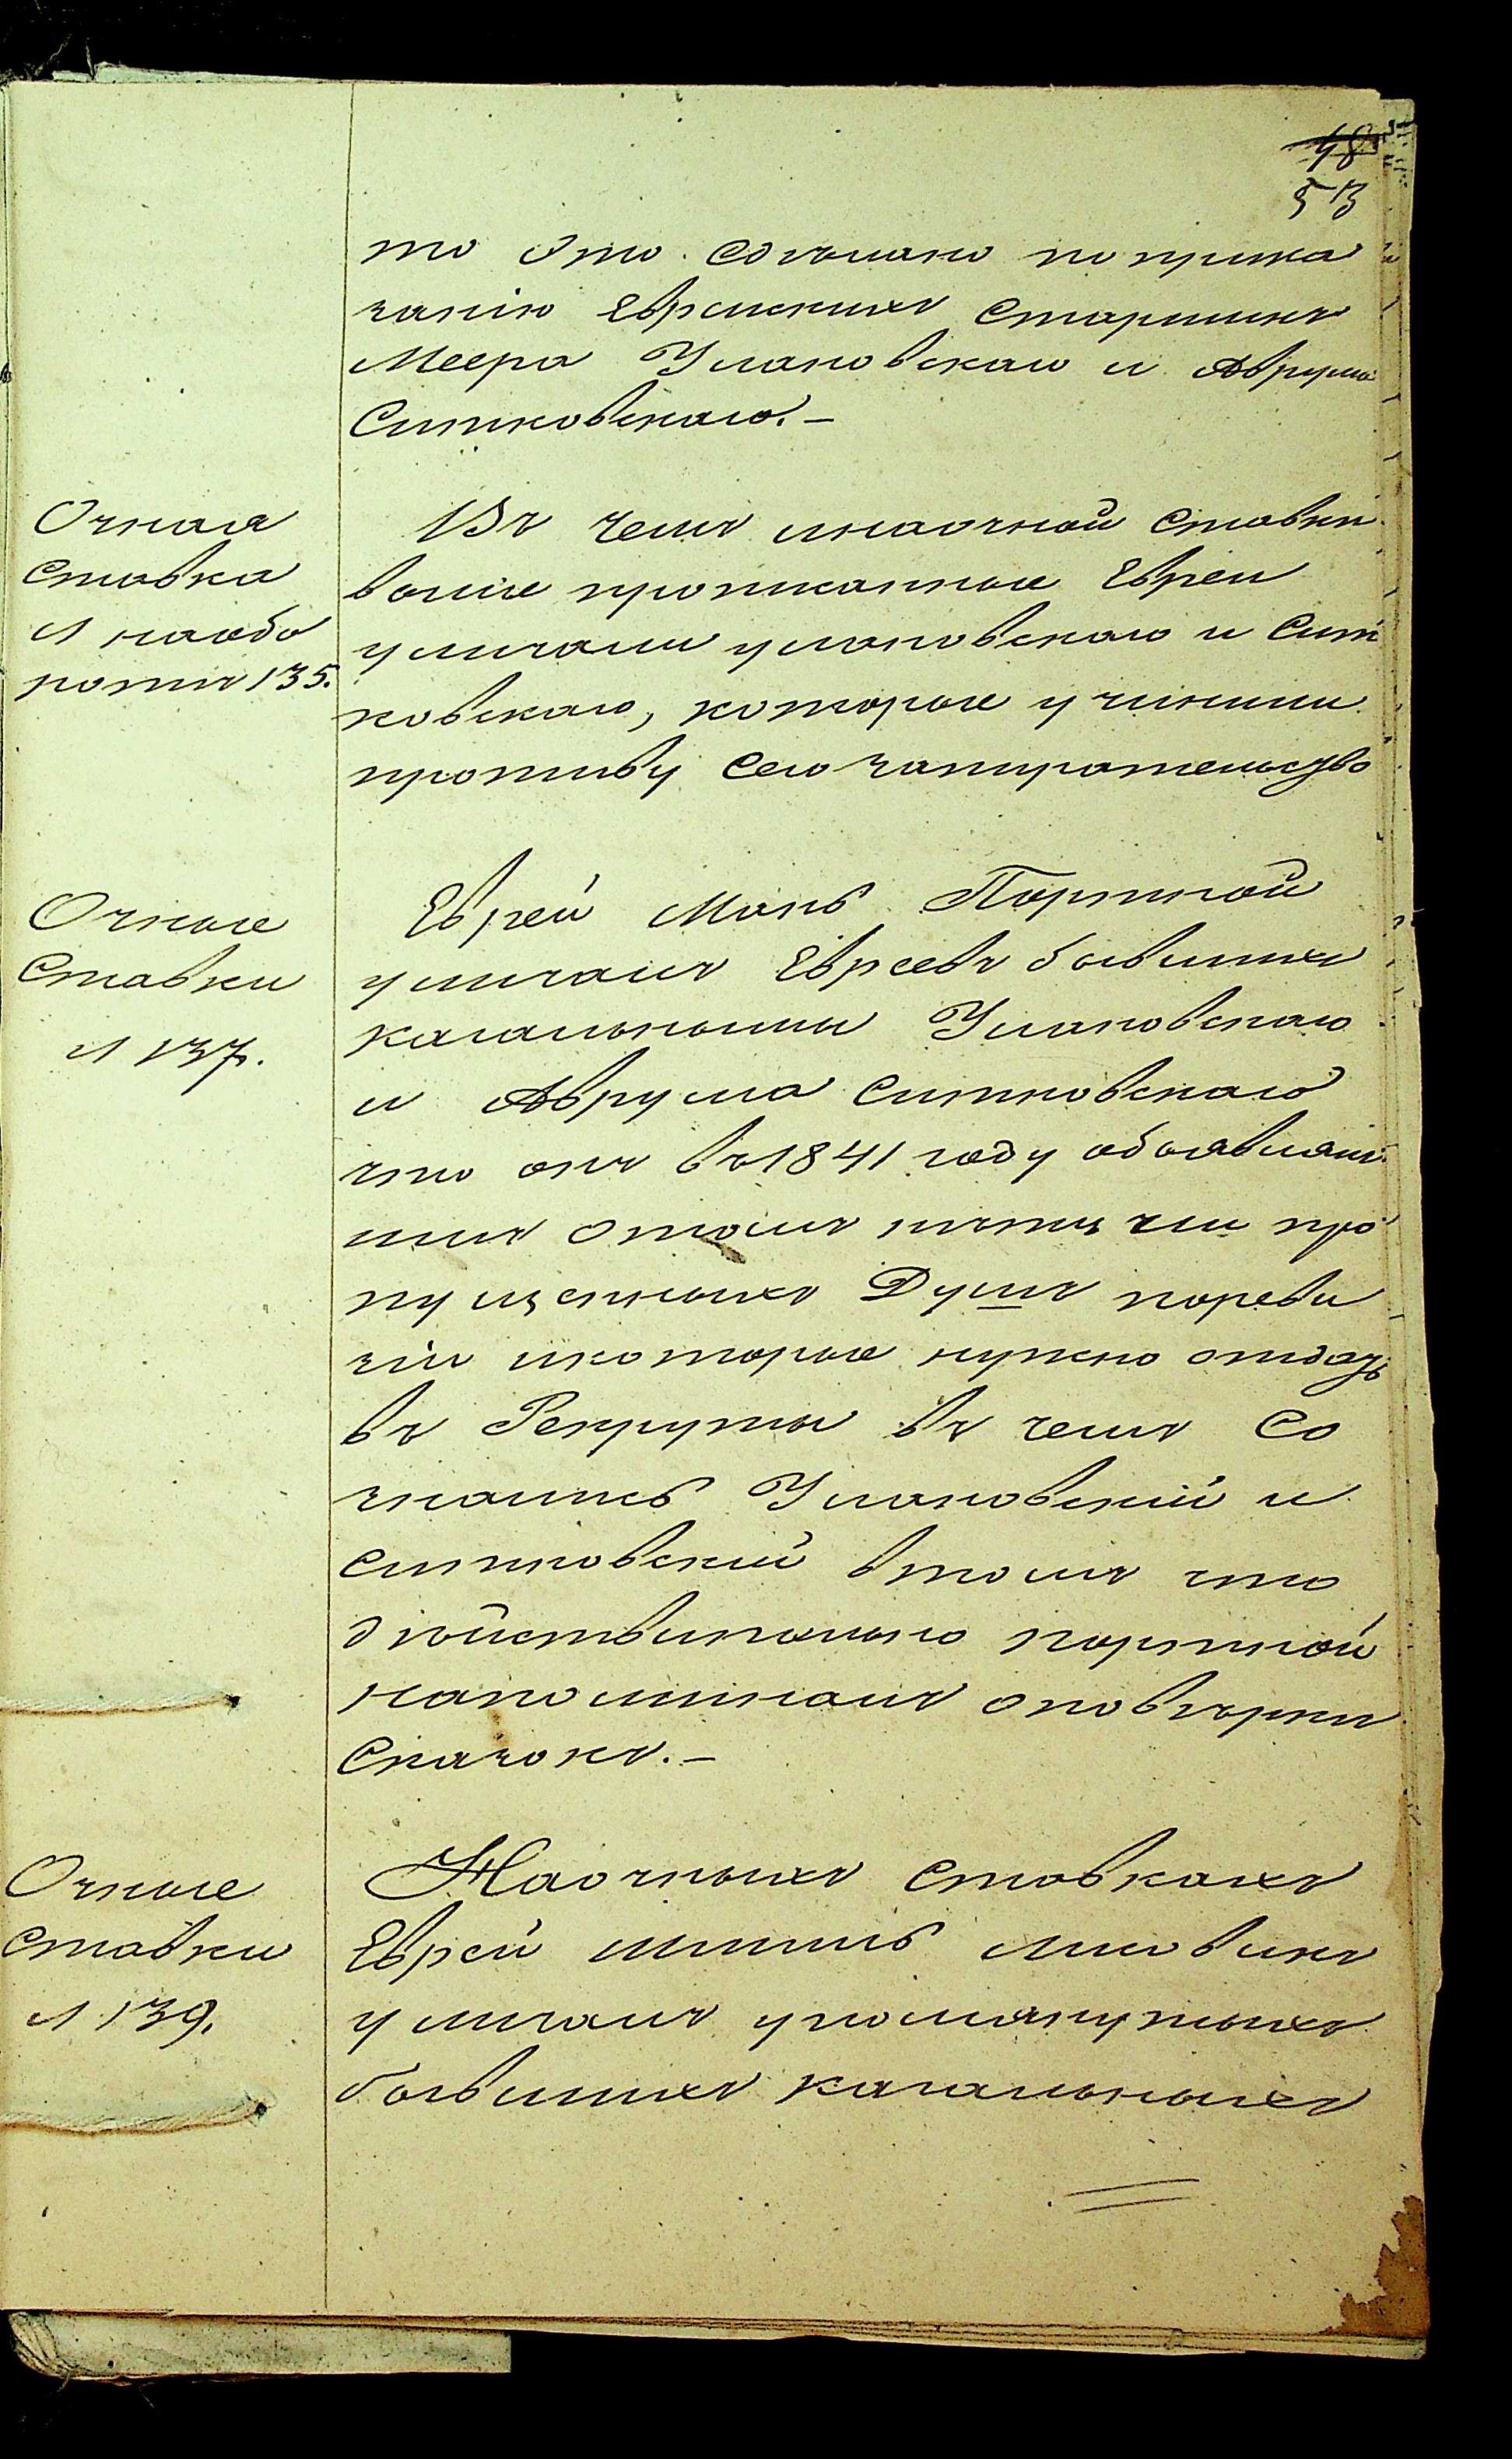 48
53
то это сделано по прика
занію Еврейскихъ Старшинъ
Меера Улановскаго и Аврума
Ситковскаго.–
Очная
Ставка
л на обо
ротъ 135.
Въ чемъ и на очной ставки
выше прописанные Евреи
уличали улановскаго и Сит
ковскаго, которые учинили
противу сего запирательство
Очные
Ставки
л 137.
Еврей Мань Портной
уличалъ Евреевъ бывшихъ
кагальными Улановскаго
и Аврума Ситковскаго
что онъ въ 1841 году объявлялъ
имъ отомъ что
пущенныхъ Душъ пореви
зіи и которые нужно отдать
въ Рекруты въ чемъ Со
знались Улановский и
Ситковский втомъ что
действительно портной
напоминалъ оповерки
Сказокъ.–
Очные
ставки
л 139.
На очныхъ ставкахъ
Еврей
уличалъ упомянутыхъ
бывшихъ кагальныхъ